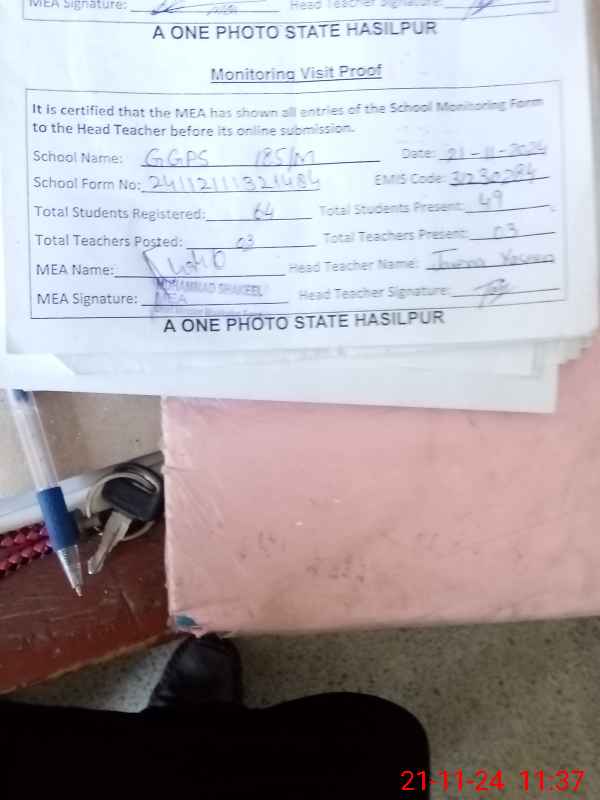 MEA Signature: Head Teacher Signature:
A ONE PHOTO STATE HASILPUR
Monitoring Visit Proof
It is certified that the MEA has shown all entries of the School Monitoring Form
to the Head Teacher before its online submission.
School Name: GGPS 185/M Date: 21-11-2024
School Form No: 24112111321484 EMIS Code: 31230284
Total Students Registered: 64 Total Students Present: 49
Total Teachers Posted: 03 Total Teachers Present: 03
MEA Name: Head Teacher Name:
MUHAMMAD SHAKEEL
MEA Signature: MEA Head Teacher Signature:
A ONE PHOTO STATE HASILPUR
21-11-24 11:37